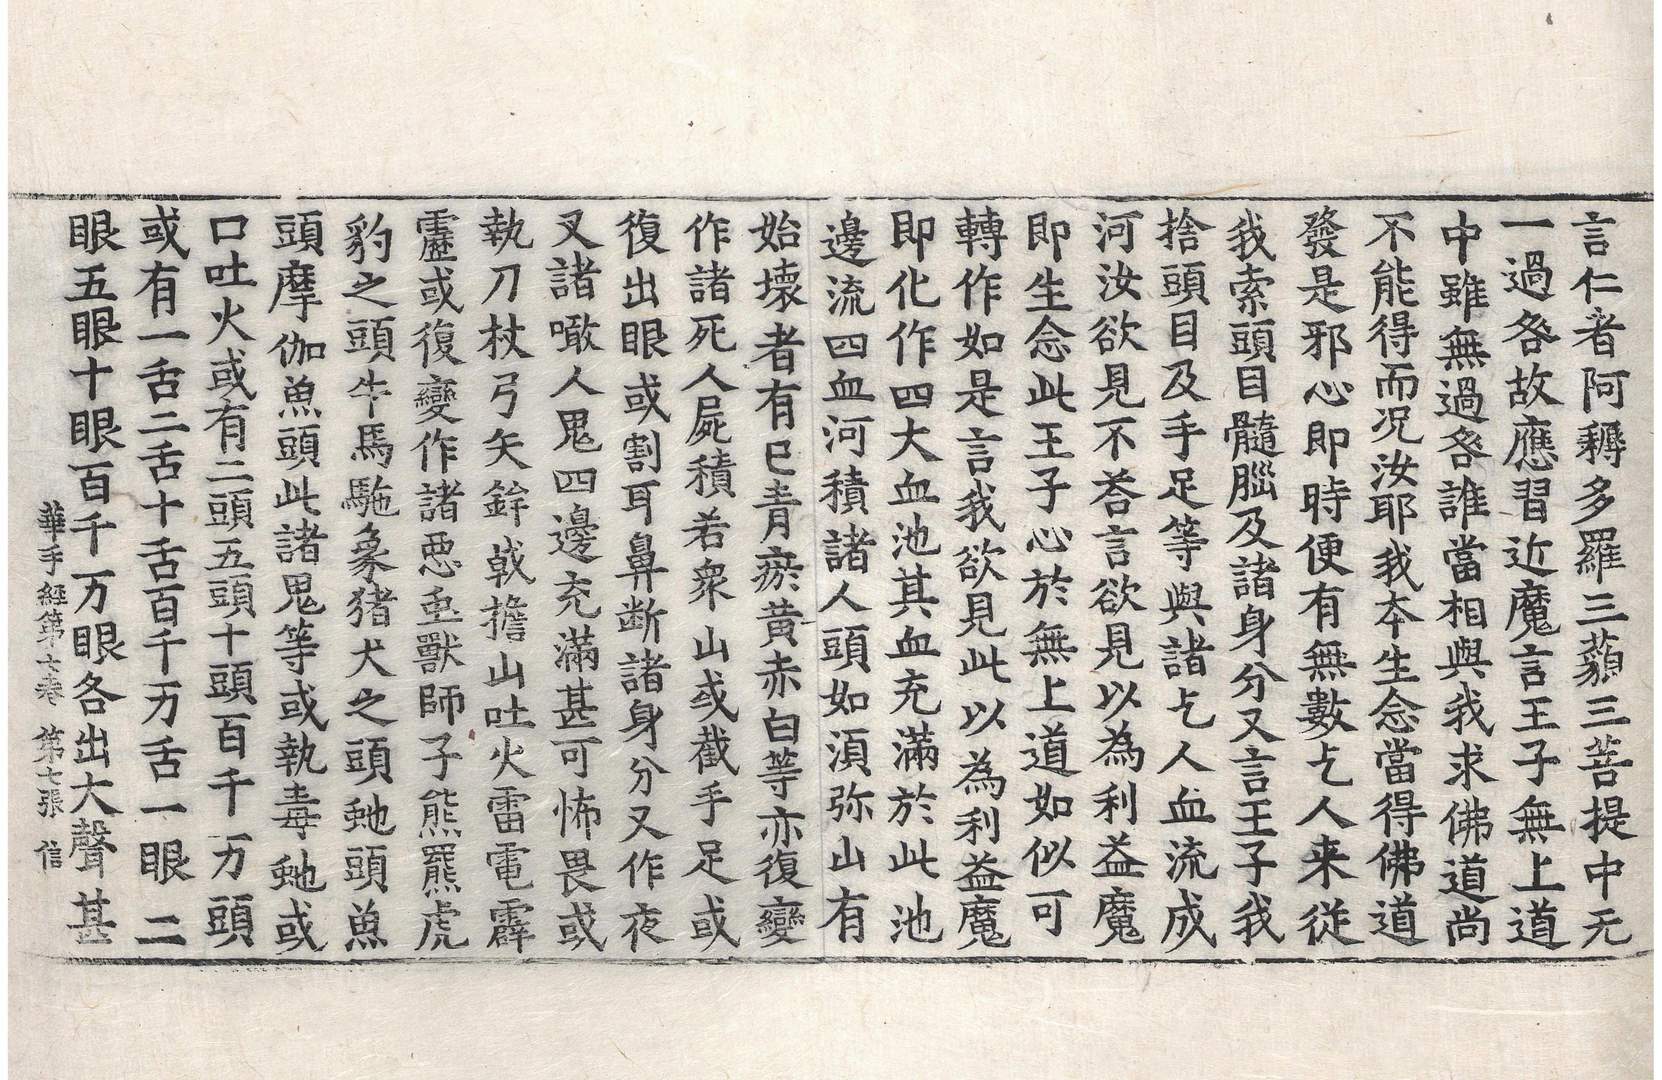 言仁者阿耨多羅三藐三菩提中无
一過咎故應習近魔言王子無上道
中雖無過咎誰當相與我求佛道尚
不能得而况汝耶我本生念當得佛道
發是邪心即時便有無數乞人来從
我索頭目髓腦及諸身分又言王子我
捨頭目及手足等與諸乞人血流成
河汝欲見不荅言欲見以為利益魔
即生念此王子心於無上道如似可
轉作如是言我欲見此以為利益魔
即化作四大血池其血充滿於此池
邊流四血河積諸人頭如湏弥山有
始壞者有已青瘀黄赤白等亦復變
作諸死人屍積若衆山或截手足或
復出眼或割耳鼻断諸身分又作夜
叉諸噉人鬼四邊充滿甚可怖畏或
執刀杖弓矢鉾戟擔山吐火雷電霹
靂或復變作諸惡虫獸師子熊羆虎
豹之頭牛馬駞象猪犬之頭虵頭魚
頭摩伽魚頭此諸鬼等或執毒虵或
口吐火或有二頭五頭十頭百千万頭
或有一舌二舌十舌百千万舌一眼二
眼五眼十眼百千万眼各出大聲甚
華手經第七卷 第七張 信